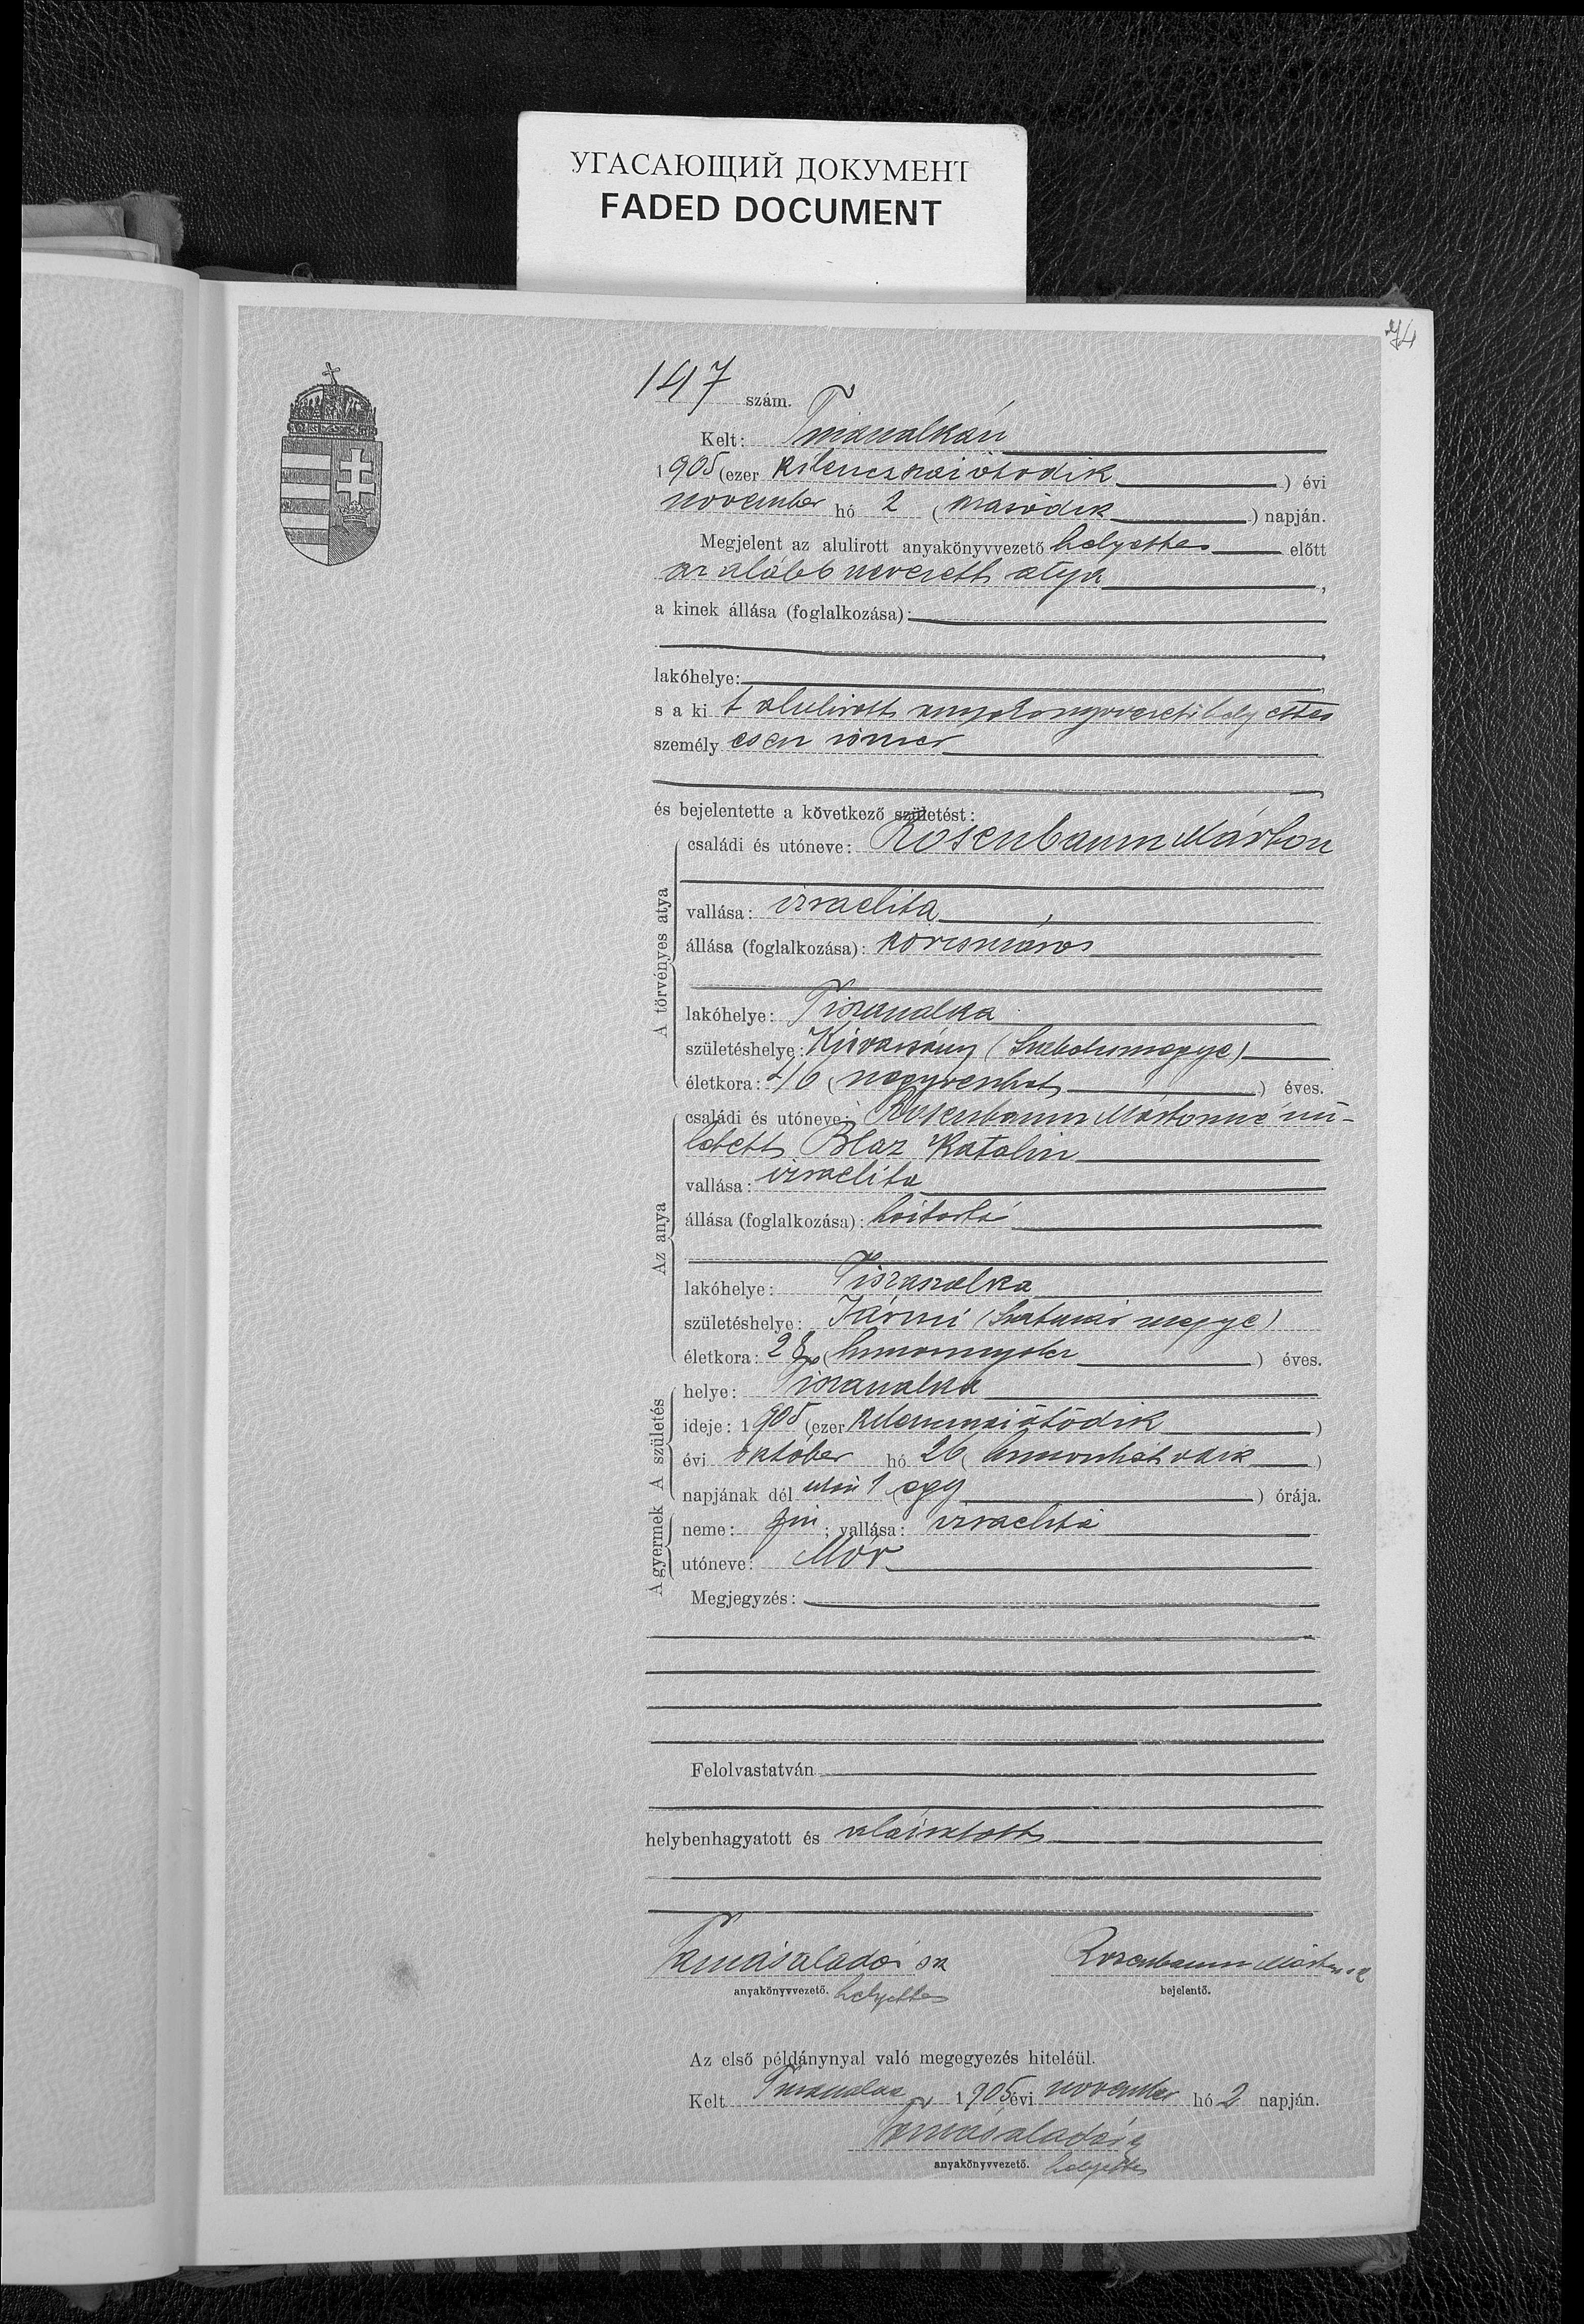 УГАСАЮЩИЙ ДОКУМЕНТ
FADED DOCUMENT
74
147 szám.
Kelt: Tiszaszalkán
1905 (ezer kilenczszázötödik) évi
november hó 2 (második) napján.
Megjelent az alulirott anyakönyvvezető helyettes előtt
az alább nevezett atya,
a kinek állása (foglalkozása):
lakóhelye:
s a ki t alulirott anyakönyvvezető helyettes
személy esen ismer
és bejelentette a következő születést:
A törvényes atya
családi és utóneve: Rosenbaum Márton
vallása: izraelita,
állása (foglalkozása): korcsmáros
lakóhelye: Tiszaszalka
születéshelye: Kisvarsány (Szabolcsmegye)
életkora: 46 (negyvenhat) éves.
Az anya
családi és utóneve: Rosenbaum Mártonné szü-
letett Blaz Katalin
vallása: izraelita
állása (foglalkozása): háztartás
lakóhelye: Tiszaszalka
születéshelye: Jármi (Szatmár megye)
életkora: 28 (huszonnyolcz) éves.
A születés
helye: Tiszaszalka
ideje: 1905 (ezer kilenczszázötödik)
évi október hó 26 (huszonhatodik)
napjának dél után 1 (egy) órája.
A gyermek
neme: fiú; vallása: izraelita
utóneve: Mór
Megjegyzés:
Felolvastatván
helybenhagyatott és aláiratott
anyakönyvvezető. helyettes
Rosenbaum Márton
bejelentő.
Az első példánynyal való megegyezés hiteléül.
Kelt Tiszaszalka 1905 évi november hó 2 napján.
anyakönyvvezető. helyettes